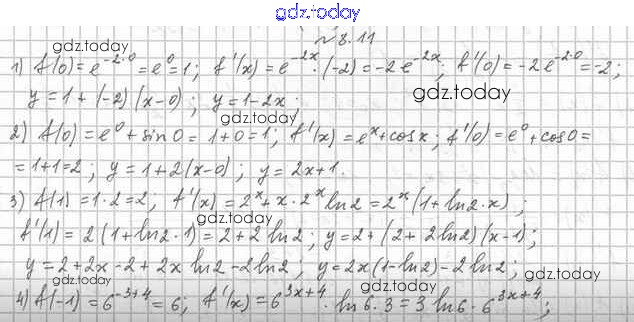 gdz.today
№8.11
gdz.today
1) f(0) = e^{-2·0} = e^0 = 1; f'(x) = e^{-2x}·(-2) = -2e^{-2x}; f'(0) = -2e^{-2·0} = -2;
y = 1 + (-2)(x-0); y = 1-2x;
gdz.today
gdz.today
2) f(0) = e^0 + sin0 = 1+0 = 1; f'(x) = e^x + cosx; f'(0) = e^0 + cos0 =
= 1+1=2; y = 1+2(x-0); y = 2x+1.
3) f(1) = 1·2 = 2; f'(x) = 2^x + x·2^x ln2 = 2^x(1+ln2·x);
gdz.today
f'(1) = 2(1+ln2·1) = 2+2ln2; y = 2+(2+2ln2)(x-1);
y = 2+2x-2+2x ln2-2ln2; y = 2x(1-ln2)-2ln2;
gdz.today
gdz.today
4) f(-1) = 6^{-3+4} = 6; f'(x) = 6^{3x+4}·ln6·3 = 3ln6·6^{3x+4};